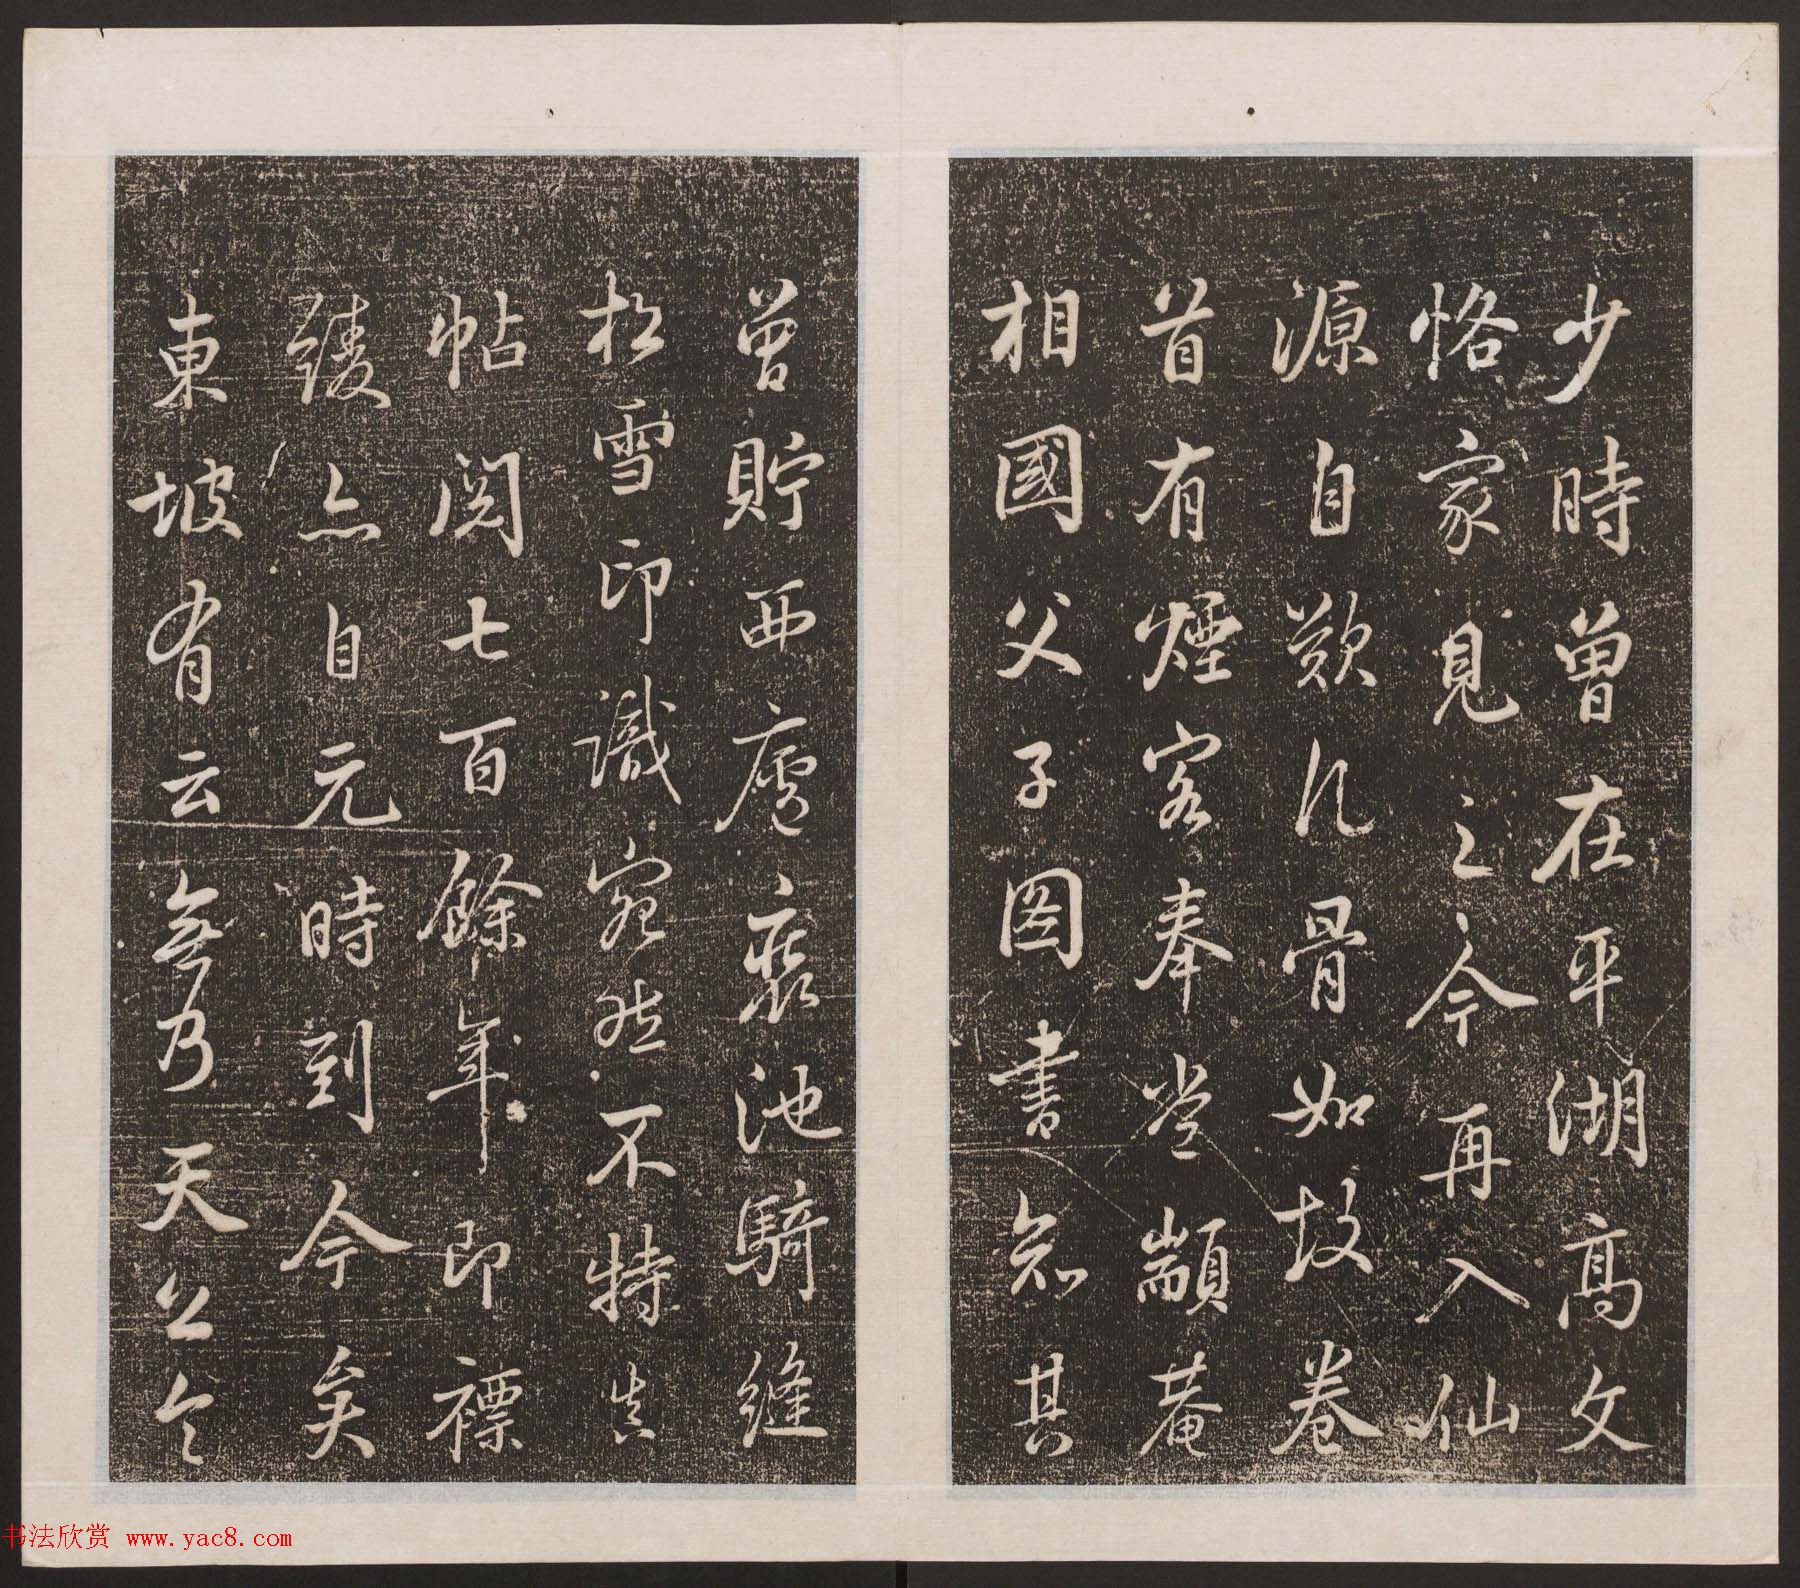 少時曾在平湖高文
恪家見之今再入仙
源自歎凡骨如故卷
首有煙客奉常顓菴
相國父子图書知其
曾貯西廬裹池騎縫
松雪印識宛然不特真
帖閱七百餘年即褾
綾亦自元時到今矣
東坡有云無乃天公令
书法欣赏 www.yac8.com